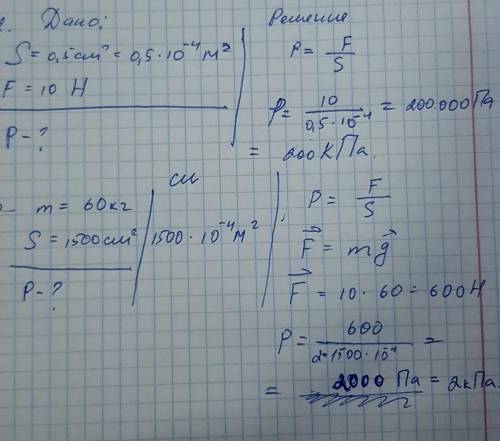 Дано:
S = 0,5 см² = 0,5 · 10⁻⁴ м²
F = 10 Н
P - ?
Решение
P = F/S
P = 10/0,5·10⁻⁴ = 200.000 Па
= 200 к Па.
m = 60 кг
S = 1500 см²
P - ?
си
1500 · 10⁻⁴ м²
P = F/S
F⃗ = mg⃗
F⃗ = 10 · 60 = 600 Н
P = 600/2·1500·10⁻⁴ =
= 2000 Па = 2 кПа.